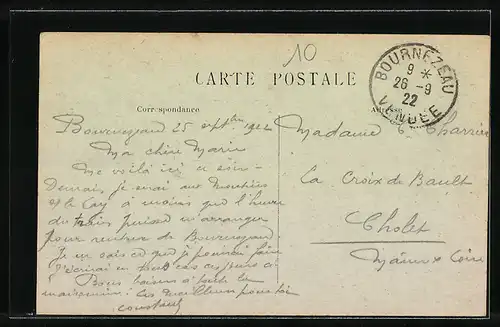 10
CARTE POSTALE
Correspondance
Adresse
BOURNEZEAU
9 *
26 -9
22
VENDEE
Bournezeau 25 sept 1922
Ma chère Marie
Me voilà ici
Demain, je irai aux
et le Cay à moins que l'heure
du train puisse m'arranger
pour rentrer de Bournezeau.
Je ne sais ce que je pourrai faire
J'écrirai en tout cas
Bons baisers à toute la
les meilleurs pour toi
constant
Madame C. Charrier
La Croix de Bault
Cholet
Maine & Loire